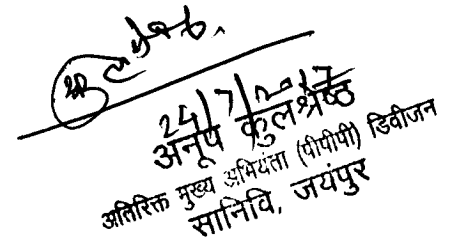 24/7/2017
अनूप कुलश्रेष्ठ
अतिरिक्त मुख्य अभियंता (पीपीपी) डिवीजन
सानिवि, जयंपुर